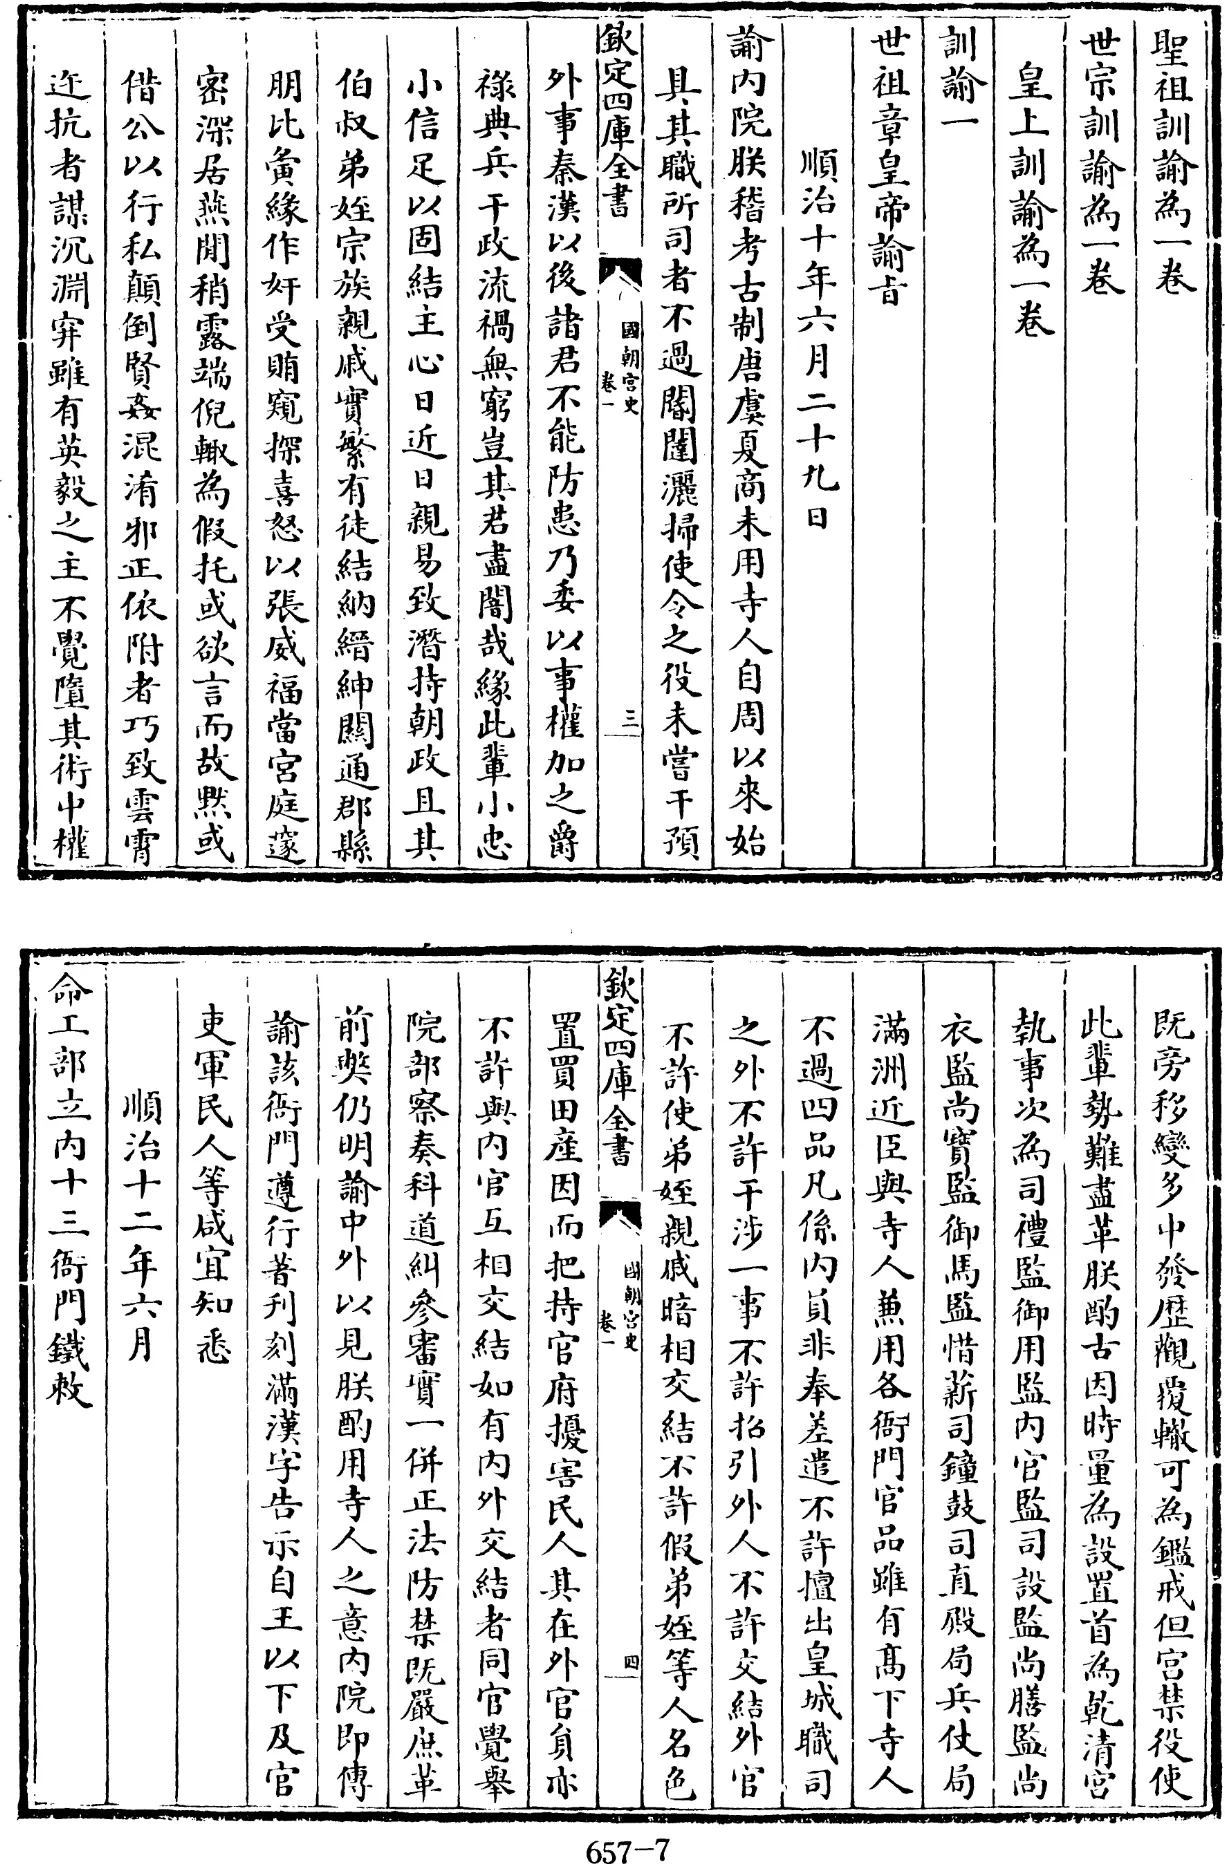 聖祖訓諭為一卷
世宗訓諭為一卷
皇上訓諭為一卷
訓諭一
世祖章皇帝諭旨
順治十年六月二十九日
諭内院朕稽考古制唐虞夏商未用寺人自周以來始
具其職所司者不過閽闥灑掃使令之役未嘗干預
欽定四庫全書
國朝宮史
卷一
三
外事秦漢以後諸君不能防患乃委以事權加之爵
祿典兵干政流禍無窮豈其君盡闇哉緣此輩小忠
小信足以固結主心日近日親易致潛持朝政且其
伯叔弟姪宗族親戚實繁有徒結納縉紳關通郡縣
朋比夤緣作奸受賄窺探喜怒以張威福當宮庭邃
密深居燕閒稍露端倪輙為假托或欲言而故默或
借公以行私顛倒賢姦混淆邪正依附者巧致雲霄
迕抗者謀沉淵穽雖有英毅之主不覺墮其術中權
既旁移變多中發歷觀覆轍可為鑑戒但宮禁役使
此輩勢難盡革朕酌古因時量為設置首為乾清宮
執事次為司禮監御用監内官監司設監尚膳監尚
衣監尚寶監御馬監惜薪司鐘鼓司直殿局兵仗局
滿洲近臣與寺人兼用各衙門官品雖有髙下寺人
不過四品凡係内員非奉差遣不許擅出皇城職司
之外不許干涉一事不許招引外人不許交結外官
不許使弟姪親戚暗相交結不許假弟姪等人名色
欽定四庫全書
國朝宮史
卷一
四
置買田産因而把持官府擾害民人其在外官員亦
不許與内官互相交結如有内外交結者同官覺舉
院部察奏科道糾參審實一併正法防禁既嚴庶革
前獘仍明諭中外以見朕酌用寺人之意内院即傳
諭該衙門遵行著刋刻滿漢字告示自王以下及官
吏軍民人等咸宜知悉
順治十二年六月
命工部立内十三衙門鐵敕
657-7